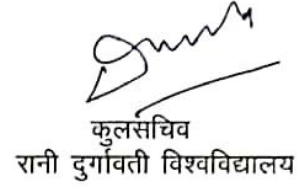 कुलसचिव
रानी दुर्गावती विश्वविद्यालय